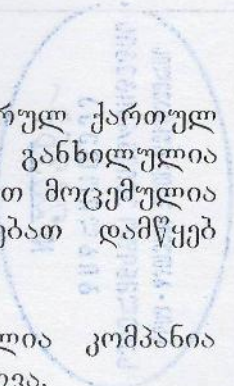 რულ ქართულ
განხილულია
თ მოცემულია
ებათ დამწყებ
ლია კომპანია